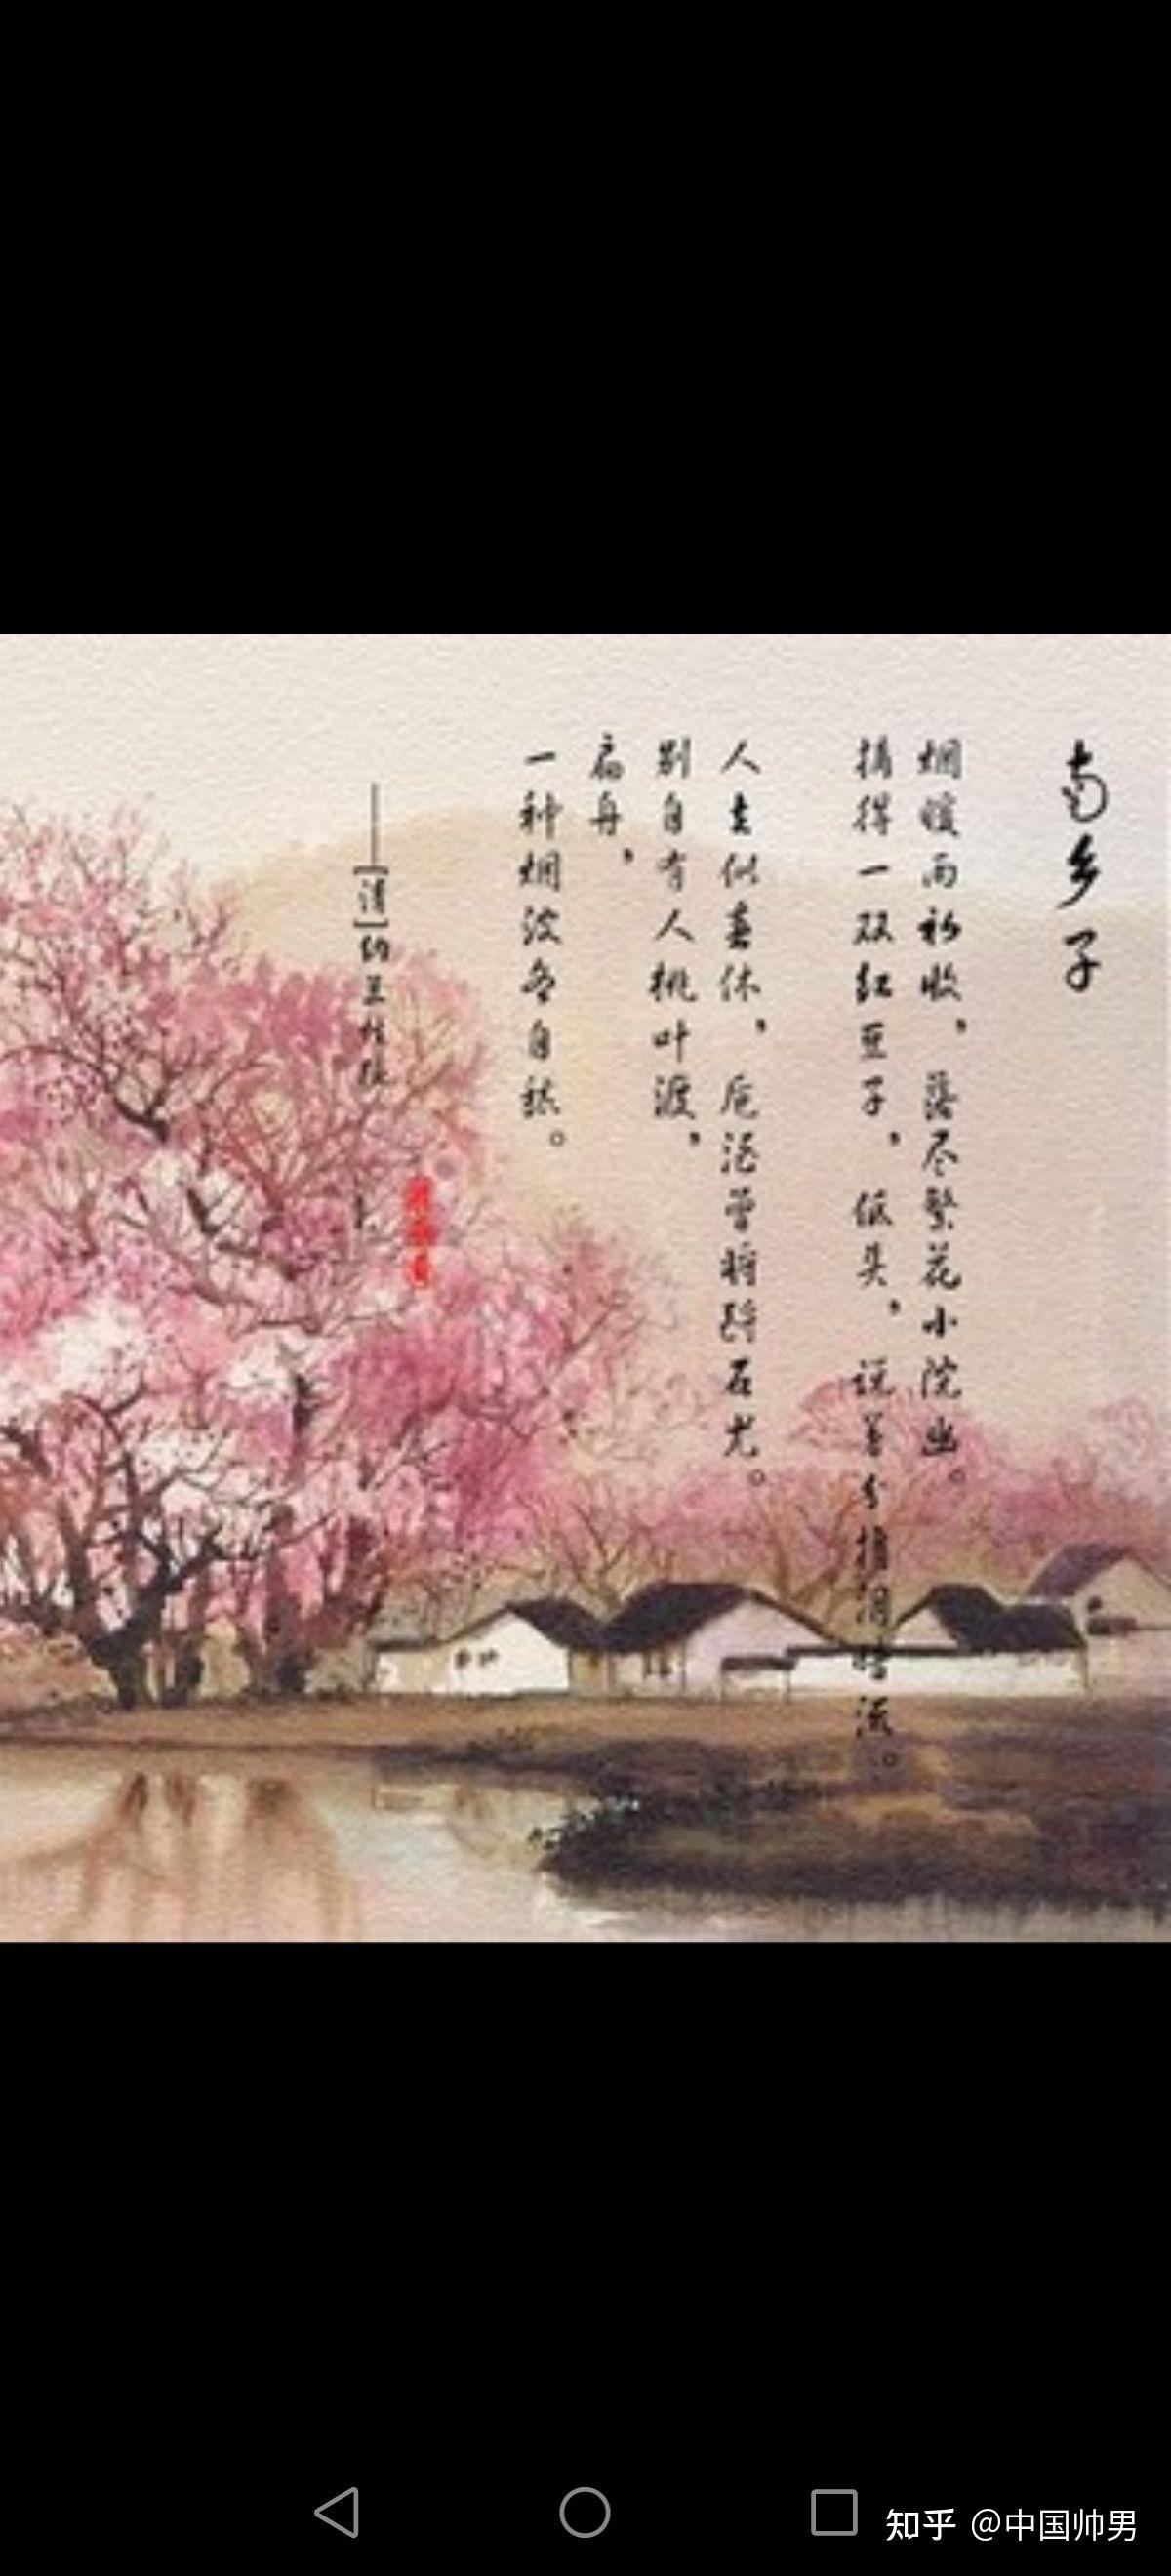 南乡子
烟暖雨初收，落尽繁花小院幽。
摘得一双红豆子，低头，说着分携泪暗流。
人去似春休，卮酒曾将酹石尤。
别自有人桃叶渡，
扁舟，
一种烟波各自愁。
——[清]纳兰性德
知乎 @中国帅男